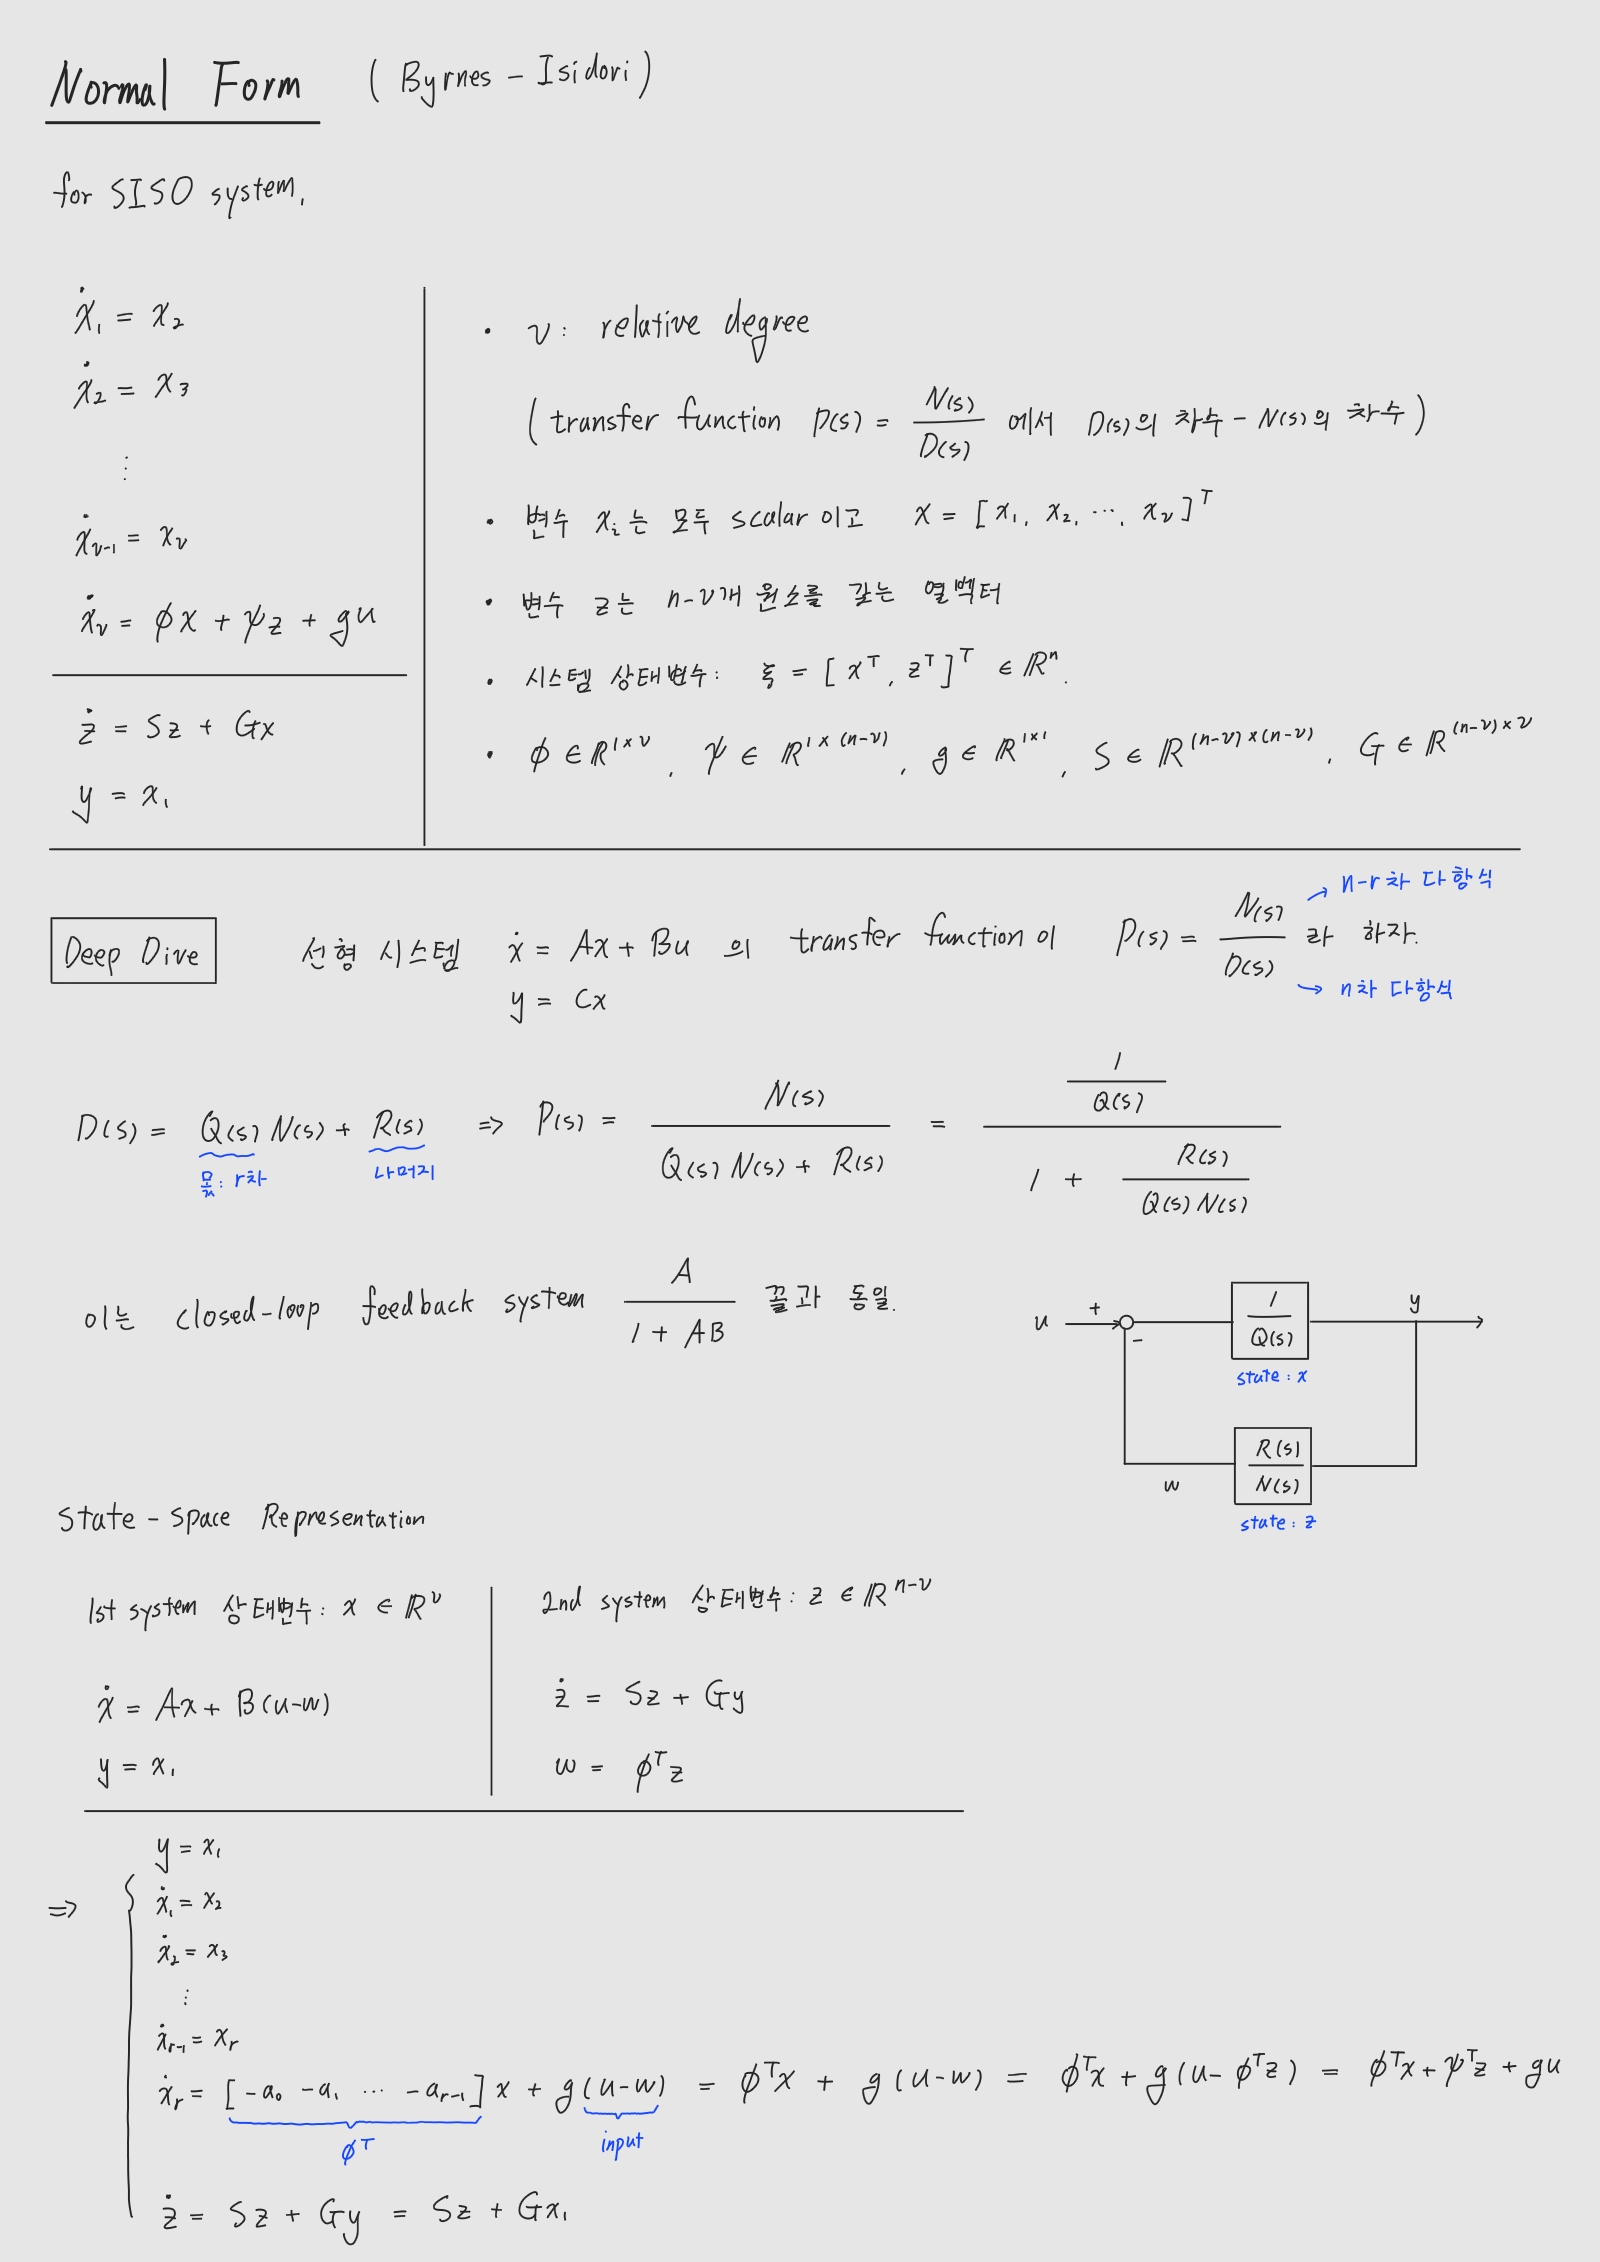 Normal Form (Byrnes - Isidori)
for SISO system.
ẋ₁ = x₂
ẋ₂ = x₃
⋮
ẋ_{ν-1} = x_ν
ẋ_ν = φx + ψz + gu
ż = Sz + Gx
y = x₁
• ν : relative degree
( transfer function P(s) = N(s)/D(s) 에서 D(s)의 차수 - N(s)의 차수 )
• 변수 x_i는 모두 scalar 이고 x = [x₁, x₂, ⋯, x_ν]^T
• 변수 z는 n-ν개 원소를 갖는 열벡터
• 시스템 상태변수: ξ = [x^T, z^T]^T ∈ ℝ^n.
• φ ∈ ℝ^{1×ν}, ψ ∈ ℝ^{1×(n-ν)}, g ∈ ℝ^{1×1}, S ∈ ℝ^{(n-ν)×(n-ν)}, G ∈ ℝ^{(n-ν)×ν}
Deep Dive 선형 시스템 ẋ = Ax + Bu 의 transfer function이 P(s) = N(s)/D(s) 라 하자.
y = Cx
→ n-r차 다항식
→ n차 다항식
D(s) = Q(s)N(s) + R(s) ⇒ P(s) = N(s)/(Q(s)N(s) + R(s)) = (1/Q(s))/(1 + R(s)/(Q(s)N(s)))
몫: r차 나머지
이는 closed-loop feedback system A/(1 + AB) 꼴과 동일.
u + - 1/Q(s) y
state : x
w R(s)/N(s)
state : z
State - Space Representation
1st system 상태변수: x ∈ ℝ^ν
ẋ = Ax + B(u-w)
y = x₁
2nd system 상태변수: z ∈ ℝ^{n-ν}
ż = Sz + Gy
w = φ^T z
y = x₁
⇒ ẋ₁ = x₂
ẋ₂ = x₃
⋮
ẋ_{r-1} = x_r
ẋ_r = [-a₀ -a₁ ⋯ -a_{r-1}] x + g(u-w) = φ^T x + g(u-w) = φ^T x + g(u-φ^T z) = φ^T x + ψ^T z + gu
φ^T input
ż = Sz + Gy = Sz + Gx₁